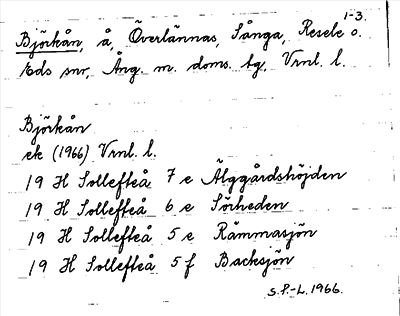 1-3.
Björkån, å, Överlännas, Sånga, Resele o.
Eds snr, Ång. m. doms. bg, Vrnl. l.
Björkån
ek (1966) Vrnl. l.
19 H Sollefteå 7 e Älggårdshöjden
19 H Sollefteå 6 e Sörheden
19 H Sollefteå 5 e Rämmasjön
19 H Sollefteå 5 f Backsjön
S.P.-L. 1966.